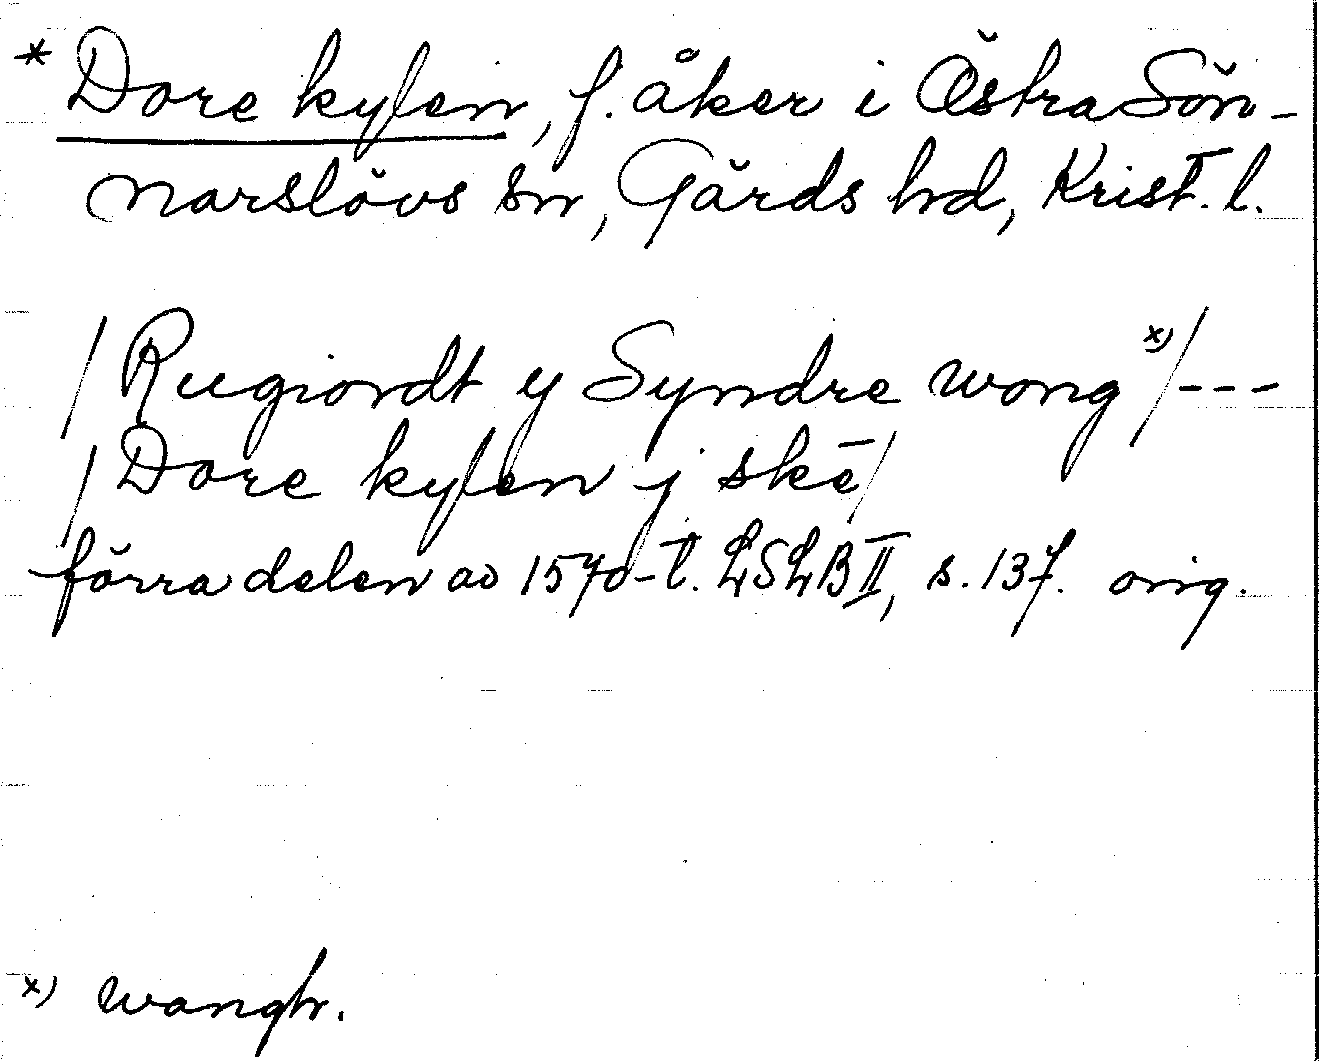 * Dore kylen, f. åker i Östra Sön-
narslövs sn, Gärds hd, Krist. l.
/Rugiordt y Syndre wong x)/---
/Dore kylen j skē/
förra delen av 1570-t. LSLB II, s. 137. orig.
x) wangh.